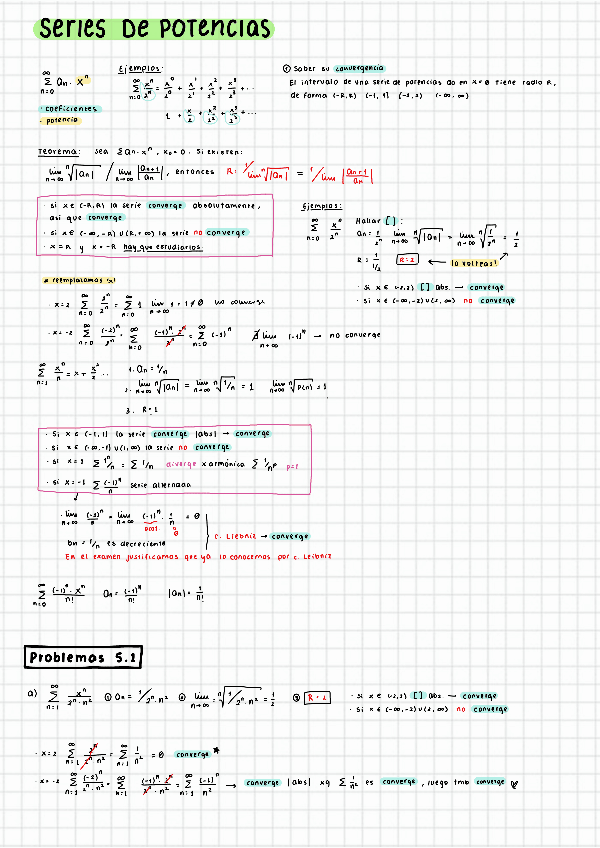 Series de potencias
∞ Σ n=0 an · xⁿ
· coeficientes
· potencia
Ejemplos:
∞ Σ n=0 xⁿ/2ⁿ = x⁰/2⁰ + x¹/2¹ + x²/2² + x³/2³ + ...
1 + x/2 + x²/2² + x³/2³ + ...
① Saber su convergencia
El intervalo de una serie de potencias do en x=0 tiene radio R,
de forma (-R,R) (-1, 1] (-2,2) (-∞, ∞)
Teorema: sea Σ an · xⁿ, x₀ = 0. Si existen:
lim n→∞ ⁿ√|an| / lim n→∞ |an+1/an|, entonces R: 1/lim ⁿ√|an| = 1/lim |an+1/an|
· si x ∈ (-R,R) la serie converge absolutamente,
así que converge
· si x ∈ (-∞, -R) ∪ (R, +∞) la serie no converge
· x = R y x = -R hay que estudiarlos
Ejemplos:
∞ Σ n=0 xⁿ/2ⁿ
Hallar [ ] :
an = 1/2ⁿ lim n→∞ ⁿ√|an| = lim n→∞ ⁿ√1/2ⁿ = 1/2
R = 1/1/2 R=2 ← la volteas!
· si x ∈ (-2,2) [ ] abs → converge
· si x ∈ (-∞,-2) ∪ (2, ∞) no converge
* reemplazamos x!
· x=2 ∞ Σ n=0 2ⁿ/2ⁿ = ∞ Σ n=0 1 lim n→∞ 1 = 1 ≠ 0 no converge
· x=-2 ∞ Σ n=0 (-2)ⁿ/2ⁿ = ∞ Σ n=0 (-1)ⁿ · 2ⁿ/2ⁿ = ∞ Σ n=0 (-1)ⁿ ∄ lim n→∞ (-1)ⁿ → no converge
∞ Σ n=1 xⁿ/n = x + x²/2 ...
1. an = 1/n
2. lim n→∞ ⁿ√|an| = lim n→∞ ⁿ√1/n = 1 lim n→∞ ⁿ√P(n) = 1
3. R = 1
· Si x ∈ (-1,1) la serie converge |abs| → converge
· si x ∈ (-∞,-1) ∪ (1, ∞) la serie no converge
· si x=1 Σ 1ⁿ/n = Σ 1/n diverge x armónica Σ 1/nᵖ p=1
· si x=-1 Σ (-1)ⁿ/n serie alternada
· lim n→∞ (-1)ⁿ/n = lim n→∞ (-1)ⁿ · 1/n = 0
acot. 0
bn = 1/n es decreciente
C. Leibniz → converge
En el examen justificamos que ya lo conocemos por c. Leibniz
∞ Σ n=0 (-1)ⁿ · xⁿ/n! an = (-1)ⁿ/n! |an| = 1/n!
Problemas 5.1
a) ∞ Σ n=1 xⁿ/2ⁿ · n² ① an = 1/2ⁿ · n² ② lim n→∞ ⁿ√1/2ⁿ · n² = 1/2 ③ R=2
· Si x ∈ (-2,2) [ ] abs → converge
· Si x ∈ (-∞,-2) ∪ (2, ∞) no converge
· x=2 ∞ Σ n=1 2ⁿ/2ⁿ · n² = ∞ Σ n=1 1/n² = 0 converge ★
· x=-2 ∞ Σ n=1 (-2)ⁿ/2ⁿ · n² = ∞ Σ n=1 (-1)ⁿ · 2ⁿ/2ⁿ · n² = ∞ Σ n=1 (-1)ⁿ/n² → converge |abs| xq Σ 1/n² es converge, luego tmb converge